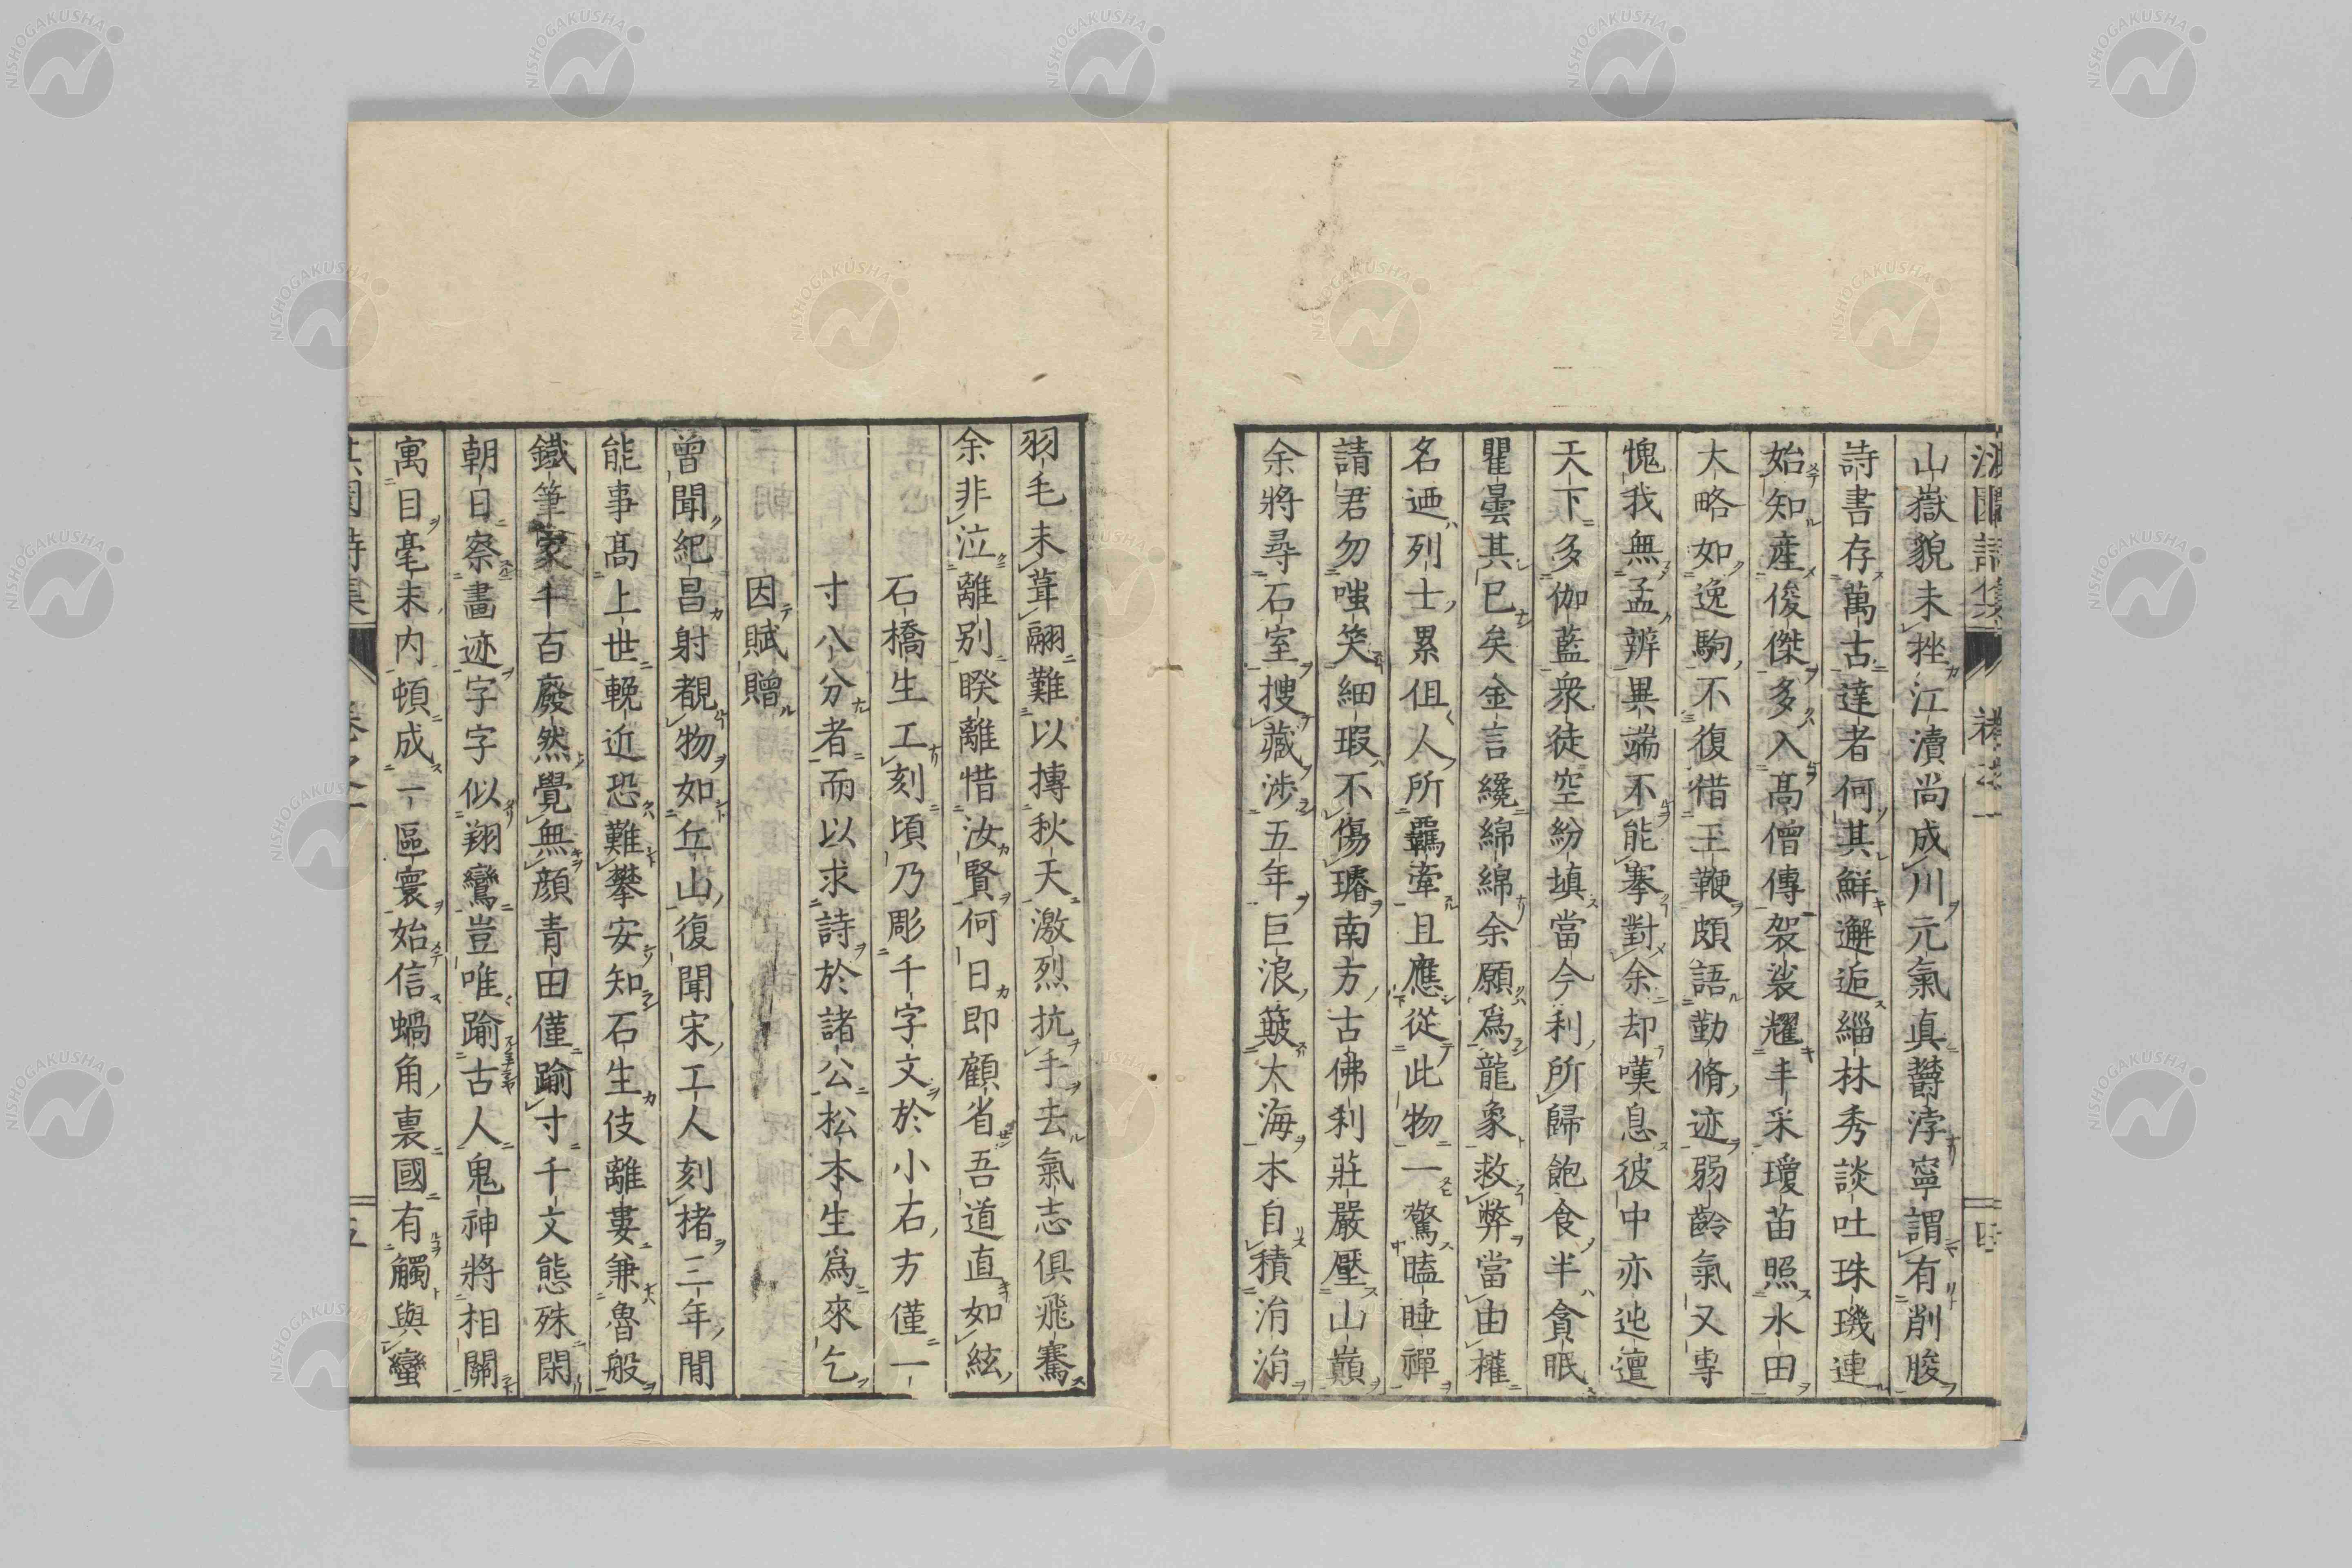 山嶽貌未挫江瀆尚成川元氣真欝浡寧謂有削朘
詩書存萬古達者何其鮮邂逅緇林秀談吐珠璣連
始知產俊傑多入髙僧傳袈裟耀丰采瓊苗照水田
大略如逸駒不復借王鞭頗語勤脩迹弱齡氣又專
愧我無孟辨異端不能搴對余却嘆息彼中亦迍邅
天下多伽藍衆徒空紛填當今利所歸飽食半貪眠
瞿曇其已矣金言纔綿綿余願爲龍象救弊當由權
名迺列士累伹人所羈牽且應從此物一驚瞌睡禪
請君勿嗤笑細瑕不傷璿南方古佛刹莊嚴壓山巔
余將尋石室搜藏涉五年巨浪簸太海本自積涓涓
羽毛未葺翮難以摶秋天激烈抗手去氣志俱飛騫
余非泣離別睽離惜汝賢何日即顧省吾道直如絃
石橋生工刻頃乃彫千字文於小石方僅一
寸八分者而以求詩於諸公松本生爲來乞
因賦贈
曾聞紀昌射覩物如丘山復聞宋工人刻楮三年間
能事髙上世輓近恐難攀安知石生伎離婁兼魯般
鐵筆家千百廢然覺無顔青田僅踰寸千文態殊閑
朝日察畵迹字字似翔鸞豈唯踰古人鬼神將相關
寓目毫末內頓成一區寰始信蝸角裏國有觸與蠻
NISHOGAKUSHA